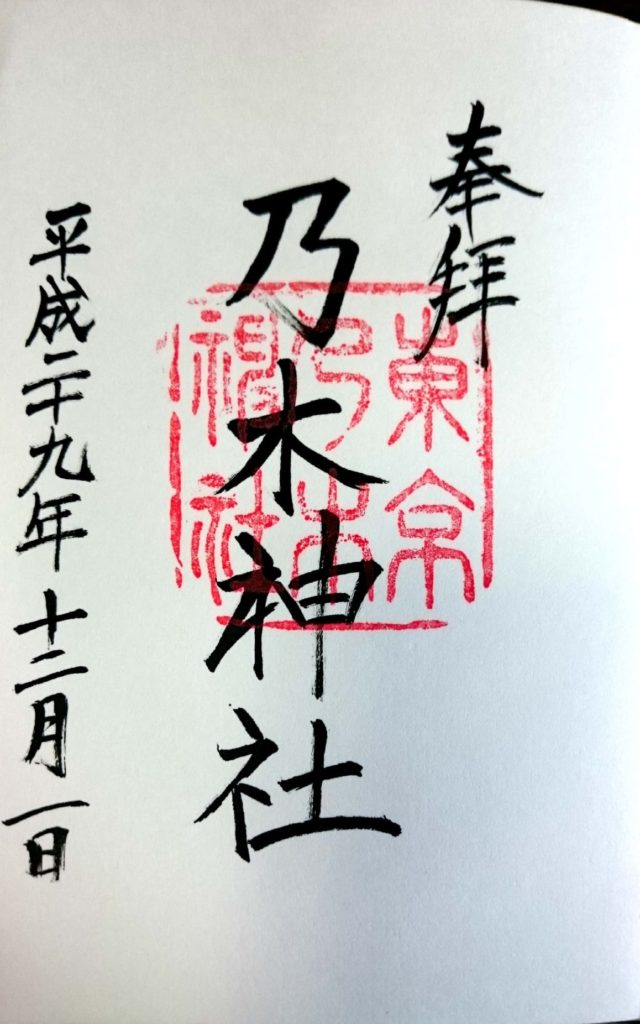 奉拝
乃木神社
平成二十九年十二月一日
東京
乃木
神社